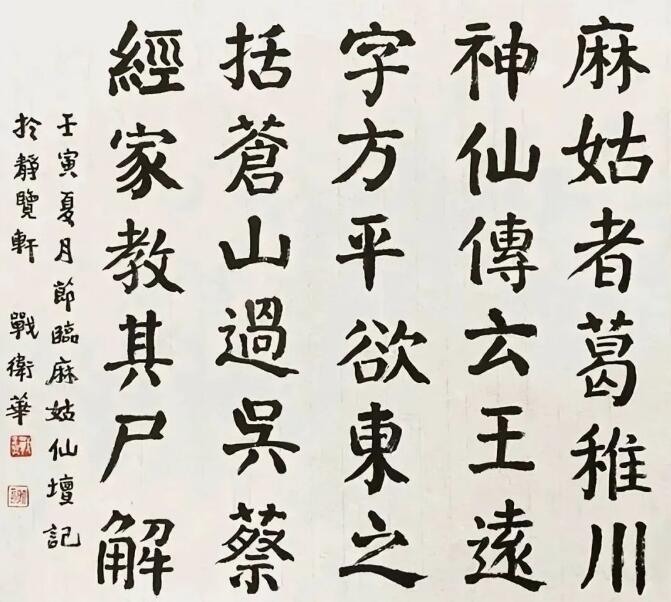 麻姑者葛稚川
神仙傳云王遠
字方平欲東之
括蒼山過吳蔡
經家教其尸解
壬寅夏月節臨麻姑仙壇記
於靜覽軒 戰衛華